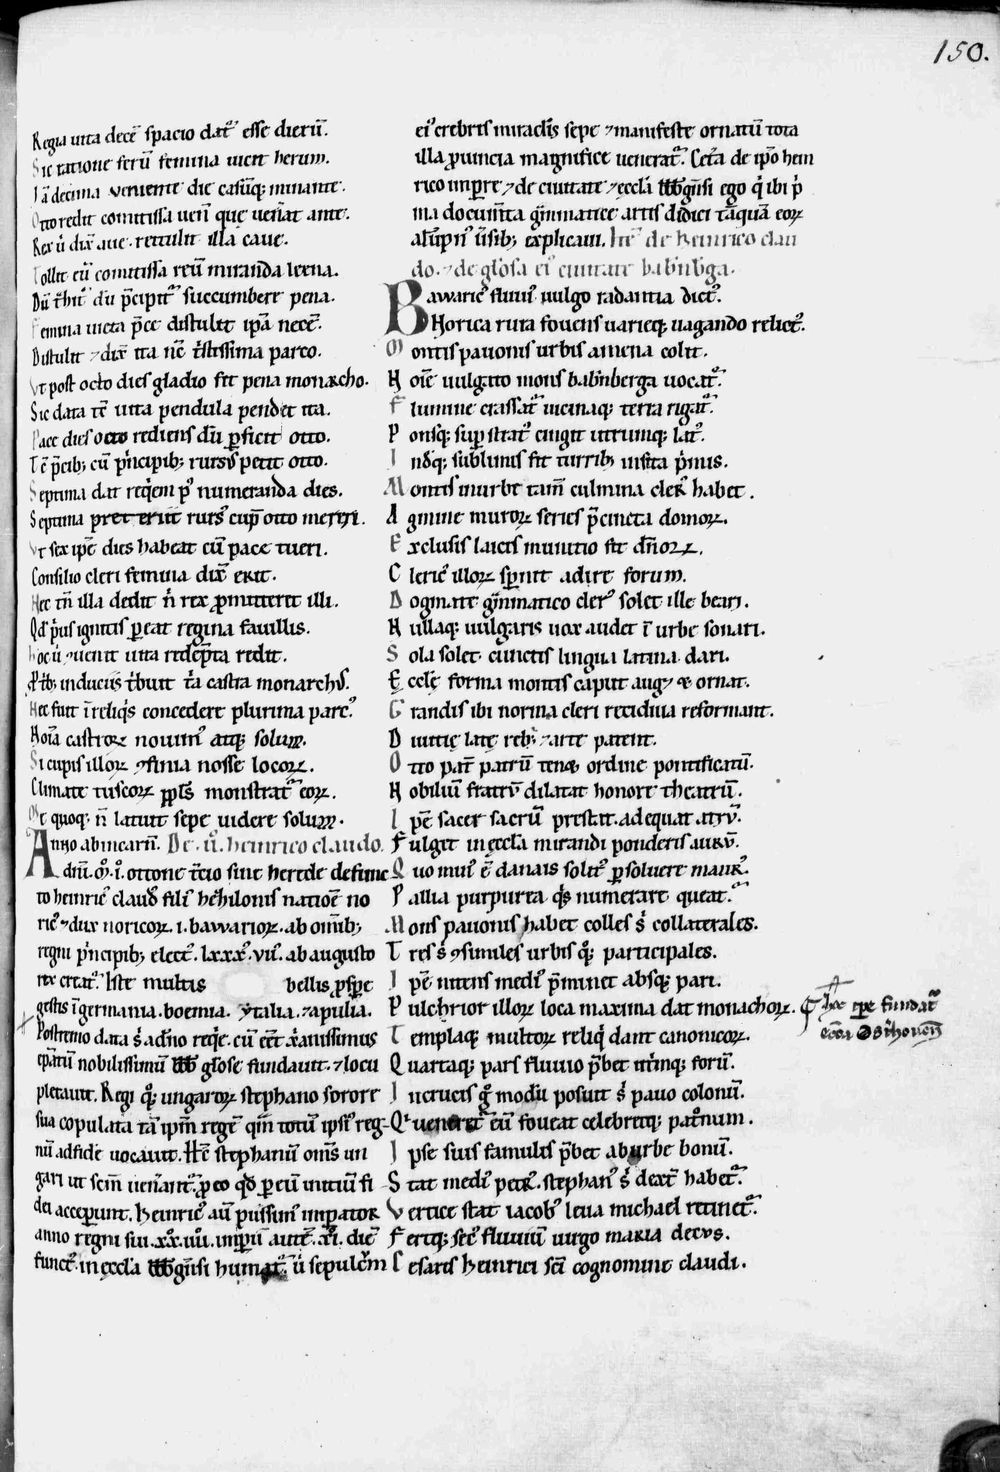 150.
Regia uita decē spacio dat᷒ esse dierū.
Sic ratione ferū femina uicit herum.
Iā decima ueniente die casūq; minante.
Otto redit comitissa uen̄ que uen̄at ante.
Rex ů dix̄ aue. rettulit illa caue.
Tollit cū comitissa reū miranda leena.
Dū t̄hit᷒ dū p̄cipit᷒ succumbere pena.
Femina uicta p̄ce distulit ipā necē.
Distulit ⁊ dix̄ ita nē t̄stissima parco.
Vt post octo dies gladio fit pena monarcho.
Sic data tē uita pendula pendet ita.
Pace dies octo rediens dū ꝑficit otto.
Tē p̄cib; cū p̍ncipib; rursus petit otto.
Septima dat req̍em p᷒ numeranda dies.
Septima preteriit rurs᷒ cup̄ otto mereri.
Vt sex ip̄e dies habeat cū pace tueri.
Consilio cleri femina dix̄ erit.
Hec tn̄ illa dedit n̍ rex ꝓmitteret illi.
Qd̄ p̍us ignitis ꝑeat regina fauillis.
hoc ů ꝯuenit uita redēpta redit.
induciis t̄buit t̄a castra monarchꝰ.
Hec fuit ī reliq̍s concedere plurima parc᷒.
Noīa castroꝝ nouim᷒ atq; solum.
Si cupis illoꝝ ꝯfinia nosse locoꝝ.
Climate tuscoꝝ ppl̄s monstrat᷒ eoꝝ.
Me quoq; n̄ latuit sepe uidere solum.
Anno ab incarn̄. De .ii̊. heinrico claudo.
dn̄i. m̊. i̊. ottone t̄cio sine herede defunc
to heinric᷒ claud᷒ fili᷒ hēhilonis natiōe no
ric᷒ ⁊ dux noricoꝝ .i. bawarioꝝ. ab om̄ib;
regni p̍ncipib; elect᷒. lxxx᷒. vii᷒. ab augusto
rex creat᷒. Iste multis bellis ꝓspe
gestis ī germania. boemia. ẏtalia. ⁊ apulia.
Postremo data s̍ a dn̄o req̍e. cū eēt xp̄ianissimus
ep̄atū nobilissimū bb̄b glo̍se fundauit. ⁊ locu
pletauit. Regi q᷒; ungaroꝝ stephano sorore
sua copulata tā ipm̄ regē qm̄ totū ips᷒ reg-
nū ad fidē uocauit. Hēc stephanū om̄s un
gari ut scm̄ uen̄ant᷒. ꝓ eo qd̄ ꝑ eū initiū fi
dei acceꝑunt. Heinric᷒ aū piissim᷒ imꝑator
anno regni sui .xx᷒. iiii. imꝑii aūtē .xii. diē
funct᷒. in ęccl̄a bb̄bgn̄si humat᷒. ů sepulc̄m
ei᷒ crebris miraclis sepe ⁊ manifeste ornatū tota
illa ꝓuincia magnifice uenerat᷒. Cet̄a de ip̄o hein
rico imꝑre ⁊ de ciuitate ⁊ ęccl̄a bb̄bgn̄si ego q̍ ibi p̍
ma docum̄ta gm̄matice artis didici tāquā eoꝝ
alūpn᷒ ūsib; explicaui. Itē de heinrico clau
do. ⁊ de glo̍sa ei᷒ ciuitate babīnb̄ga.
Bawaric᷒ fluui᷒ uulgo radantia dict᷒.
Norica rura fouens uarieq; uagando relict᷒.
Montis pauonis urbis amena colit.
Noīe uulgato mons babīnberga uocat᷒.
Flumine crassat᷒ uicinaq; terra rigat᷒.
Ponsq; suꝑ strat᷒ cingit utrumq; lat᷒.
Indq; sublimis fit turrib; insita p̍mis.
Montis in urbe tam̄ culmina cler᷒ habet.
Agmine muroꝝ series p̄cincta domoꝝ.
Exclusis laicis munitio fit dn̄oꝝ.
Cleric᷒ illoꝝ sp̄nit adire forum.
Dogmate gm̄matico cler᷒ solet ille beari.
Nullaq; uulgaris uox audet ī urbe sonari.
Sola solet cunctis lingua latina dari.
Ęcclę forma montis caput aug; & ornat.
Grandis ibi norma cleri recidiua reformant.
Diuitię latę reb; ⁊ arte patent.
Otto pat̄ patrū ten& ordine pontificatū.
Nobiliū fratrū dilatat honore theatrū.
Ipē sacer sacrū prestat adequat atrū.
Fulget in ęccl̄a mirandi ponderis aurū.
Quo mui᷒ ē danais solit᷒ ꝑsoluere maur᷒.
Pallia purpurea q̍s numerare queat.
Mons pauonis habet colles s̍ collaterales.
Tres s̍ ꝯsimiles urbis q᷒; participales.
Ipē nitens medi᷒ p̄minet absq; pari.
Pulchrior illoꝝ loca maxima dat monachoꝝ.
Templaq; multoꝝ reliq̍ dant canonicoꝝ.
Quartaq; pars fluuio p̄bet utrimq; forū.
In crucis g᷒ modū posuit s̍ pauo colonū.
Q᷒ ueneret᷒ eū foueat celebretq; pat᷒num.
Ipse suis famulis p̄bet ab urbe bonū.
Stat medi᷒ petr᷒. stephan᷒ s̍ dext̄ habet᷒.
Vertice stat iacob᷒ leua michael retinet᷒.
Fertq; sec᷒ fluuiū uirgo maria decus.
Cesaris heinrici scī cognomine claudi.
hic ep̄e fundat᷒
ecc̄a Ost̄houen̄